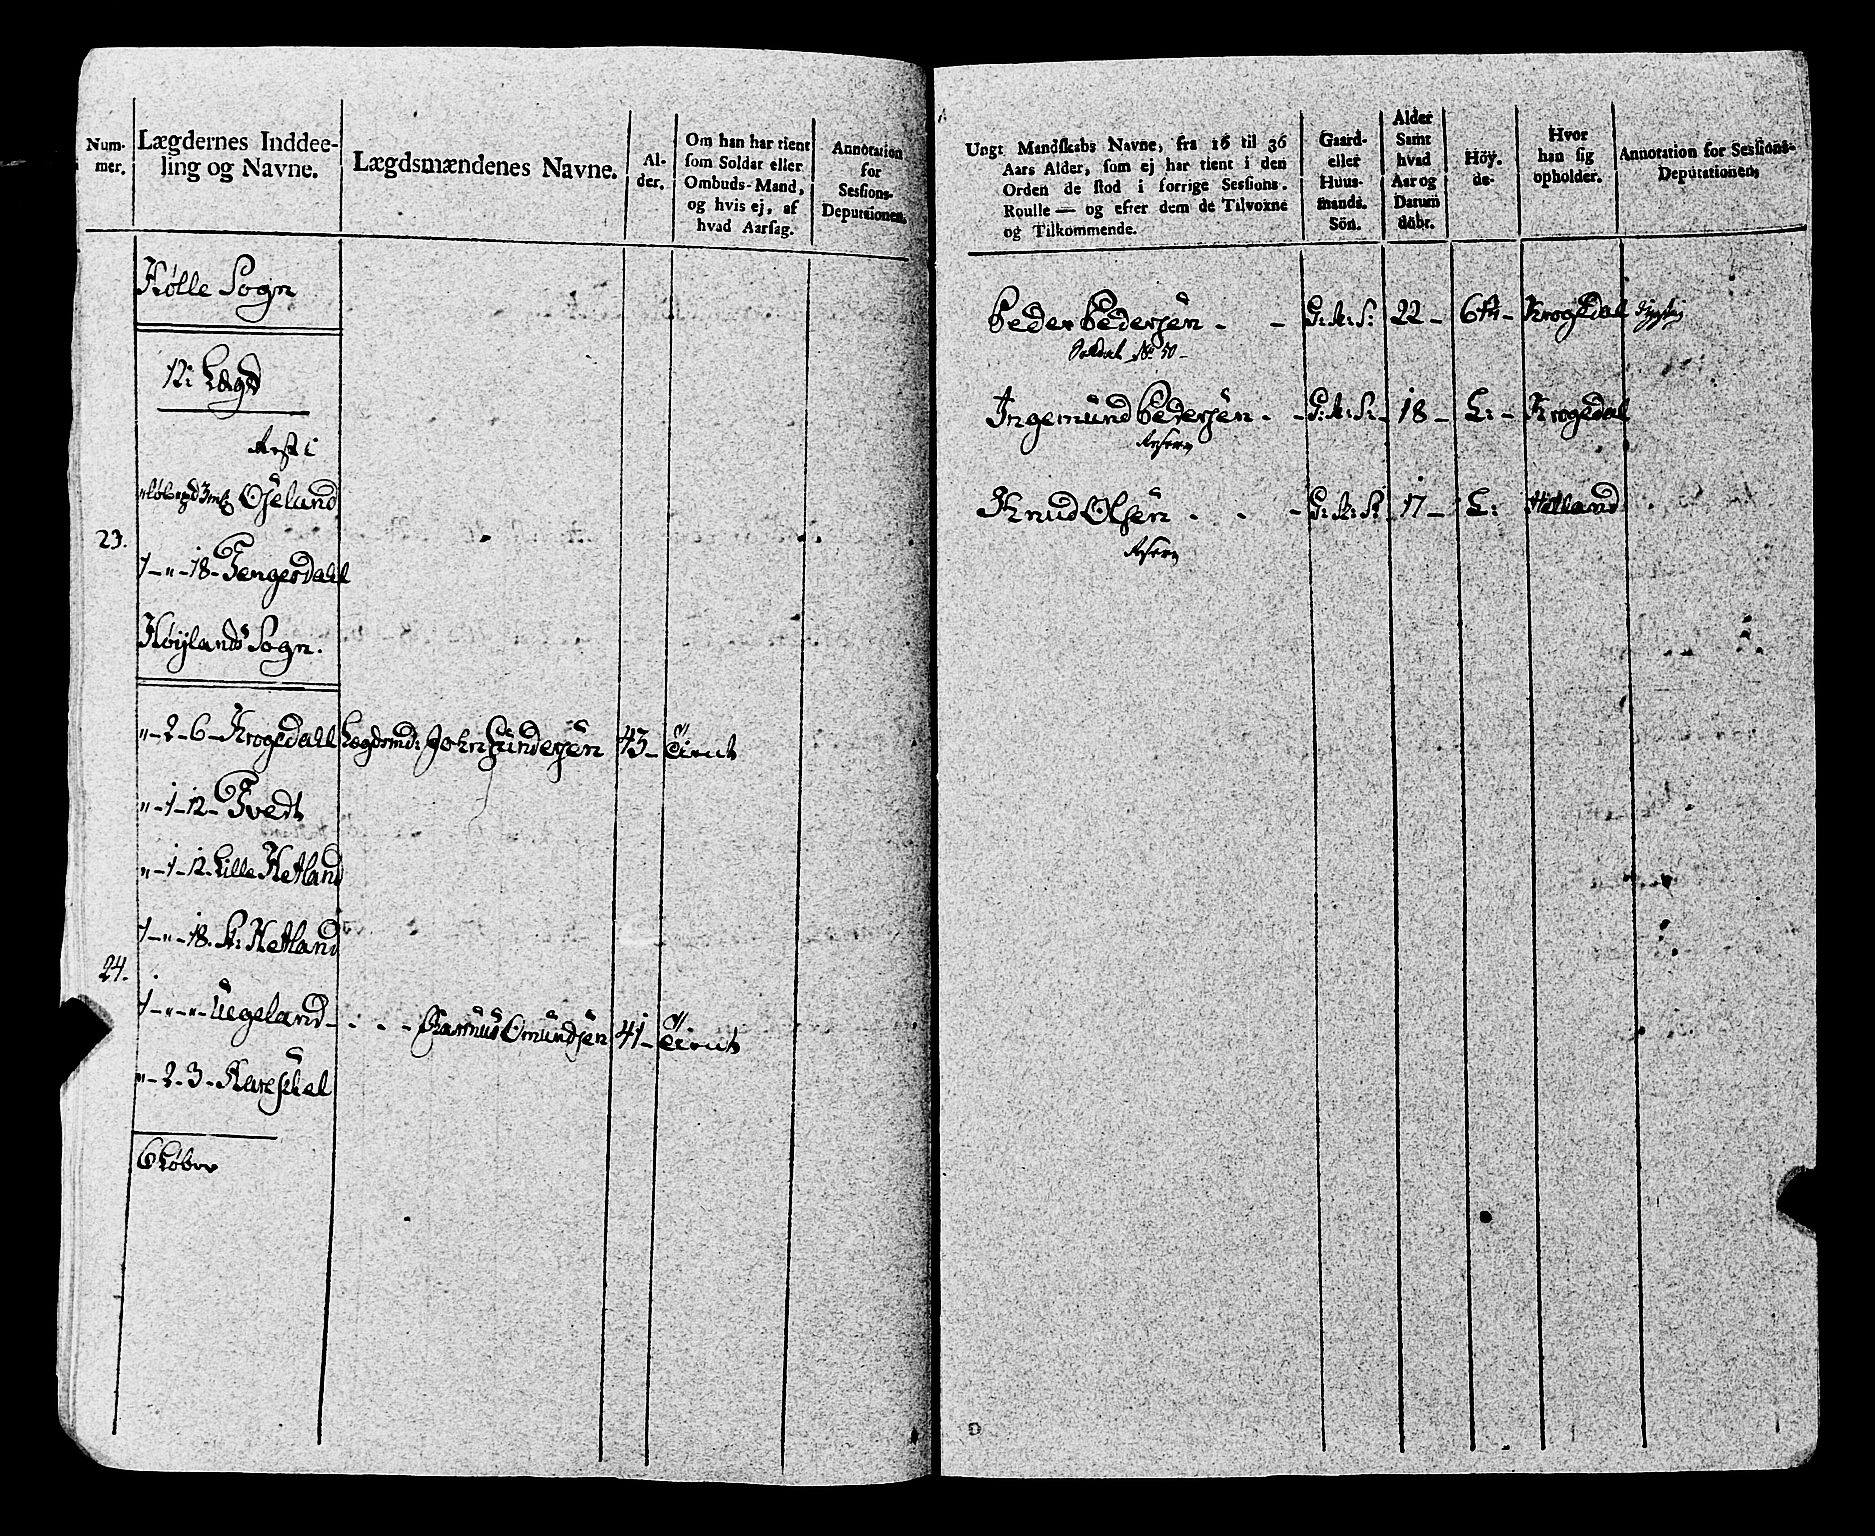 Num-
mer.
Lægdernes Inddee-
ling og Navne.
Lægdsmændenes Navne.
Al-
der.
Om han har tient
som Soldat eller
Ombuds-Mand,
og hvis ej, af
hvad Aarsag.
Annotation
for
Sessions-
Deputationen.
Hølle Sogn
12: Lægd
Rest i
Øjelund
23.
1 - " - 18 - Tengesdahl
Høylands Sogn.
" - 2 - 6 - Krogedahl Lægdsmd: John 43 -
" - 1 - 12 - Tvedt
" - 1 - 12 - Lille Hetland
1 - " - 18. St: Hetland
24.
1 - " - " - Uegeland - - - - Rasmus Omundsen 41 -
" - 2 - 3 -
6 Løber
Ungt Mandskabs Navne, fra 16 til 36
Aars Alder, som ej har tient i den
Orden de stod i forrige Sessions-
Roulle — og efter dem de Tilvoxne
og Tilkommende.
Gaard-
eller
Huus-
mands-
Sön.
Alder
Samt
hvad
Aar og
Datum
döbr.
Höy-
de-
Hvor
han sig
opholder.
Annotation for Sessions-
Deputationen.
Peder Pedersen - - G: M: S: 22 - Krogedal
Soldat No 50 -
Ingemund Pedersen - - G: M: S: 18 - L: - Krogedal
Reserv
Knud Olsen - - - G: M: S: 17 - L: Hetland
Reserv
D